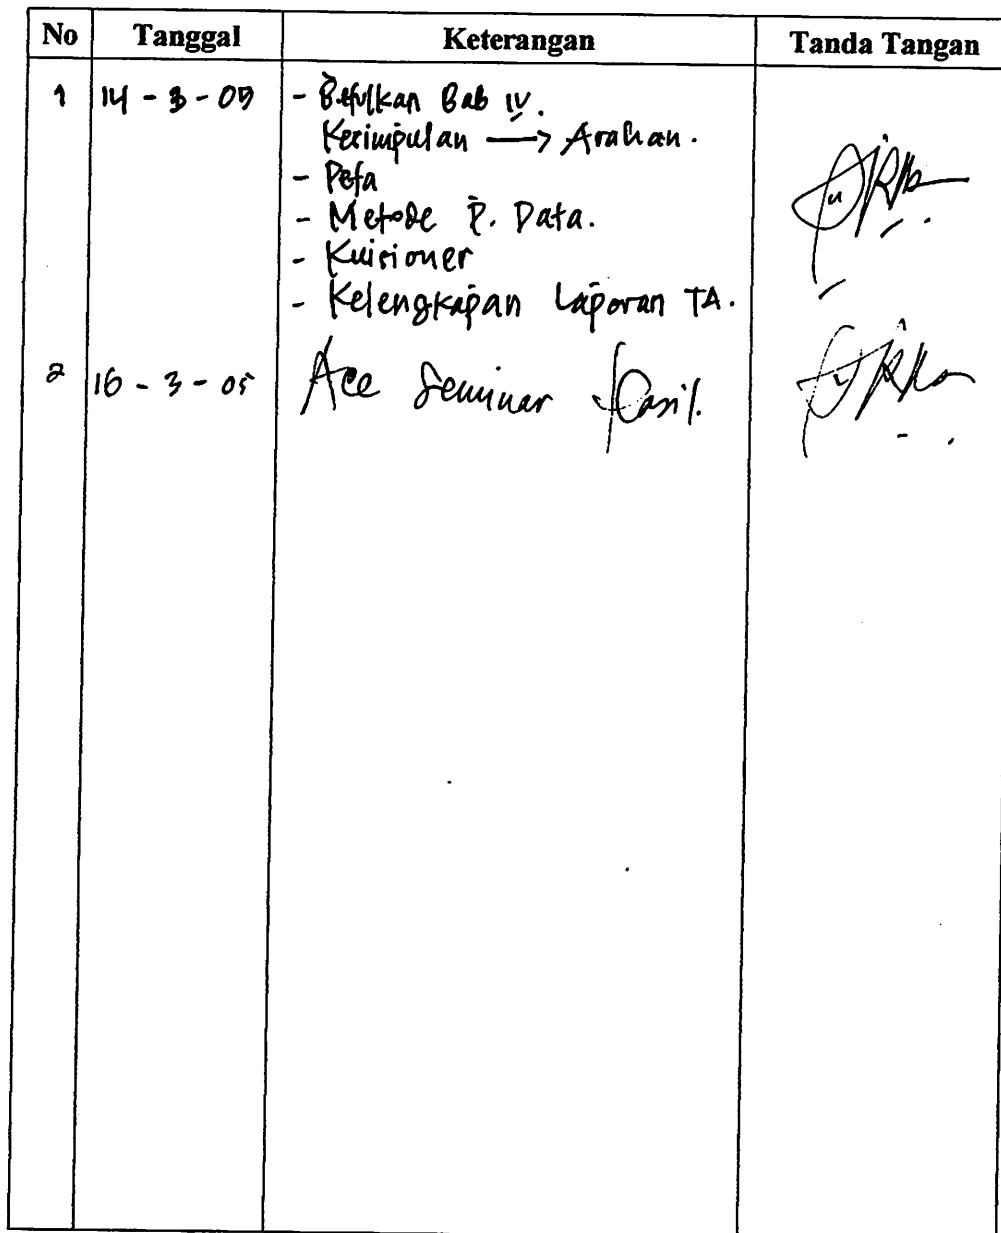 No Tanggal Keterangan Tanda Tangan
1 14 - 3 - 05 - Betulkan Bab IV.
Kesimpulan → Arahan.
- Peta
- Metode P. Data.
- Kuisioner
- Kelengkapan Laporan TA.
2 16 - 3 - 05 Acc Seminar Hasil.